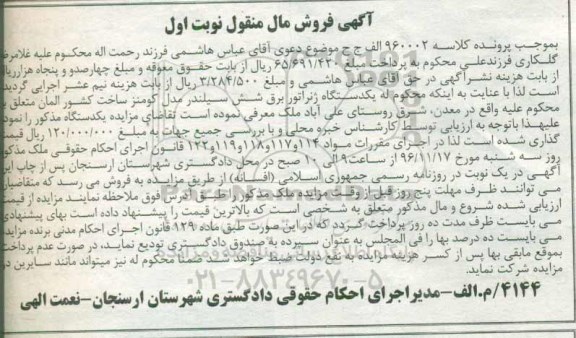 آگهی فروش مال منقول نوبت اول
بموجب پرونده کلاسه ۹۶۰۰۰۲ الف ج ح موضوع دعوی آقای عباس هاشمی فرزند رحمت اله محکوم علیه غلامرضا
گلکاری فرزندعلی محکوم به پرداخت مبلغ ۶۵/۶۹۱/۴۲۰ ریال از بابت حقوق متوقه و مبلغ چهارصدو و پنجاه هزارریال
از بابت هزینه نشرآگهی در حق آقای عباس هاشمی و مبلغ ۳/۲۸۴/۵۰۰ ریال از بابت هزینه نیم عشر اجرایی گردیده
است لذا با عنایت به اینکه محکوم له یکدستگاه ژنراتور برق شش سیلندر مدل کومنز ساخت کشور المان متعلق به
محکوم علیه واقع در معدن، شرق روستای علی آباد ملک معرفی نموده است تقاضای مزایده یکدستگاه مذکور را نموده
علیهذا باتوجه به ارزیابی توسط کارشناس خبره محلی و با بررسی جمیع جهات به مبلغ ۱۲۰/۰۰۰/۰۰۰ ریال قیمت
گذاری شده است لذا در اجرای مقررات مواد ۱۱۴و۱۱۷و۱۱۸و۱۱۹و۱۲۲ قانون اجرای احکام حقوقی ملک مذکور
روز سه شنبه مورخ ۹۶/۱۱/۱۷ از ساعت۹ الی ۱۰ صبح در محل دادگستری شهرستان ارسنجان پس از چاپ این
آگهی در یک نوبت در روزنامه رسمی جمهوری اسلامی (افسانه) از طریق مزایده به فروش می رسد که متقاضیان
می توانند ظرف مهلت پنج روز قبل از وقت مزایده ملک مذکور را طبق آدرس فوق ملاحظه نمایند مزایده از قیمت
ارزیابی شده شروع و مال مذکور متعلق به شخصی است که بالاترین قیمت را پیشنهاد داده است بهای پیشنهادی
می بایست ظرف مدت ده روز پرداخت گردد که در این صورت طبق ماده ۱۲۹ قانون اجرای احکام مدنی برنده مزایده
می بایست ده درصد بها را فی المجلس به عنوان سپرده به صندوق دادگستری تودیع نماید، در صورت عدم پرداخت
بموقع مابقی بها پس از کسر هزینه مزایده به نفع دولت ضبط خواهد شد ضمنا محکوم له نیز میتواند مانند سایرین در
مزایده شرکت نماید.
۴۱۴۴/م.الف-مدیراجرای احکام حقوقی دادگستری شهرستان ارسنجان-نعمت الهی
۰۲۱-۸۸۳۴۹۶۷۰-۵